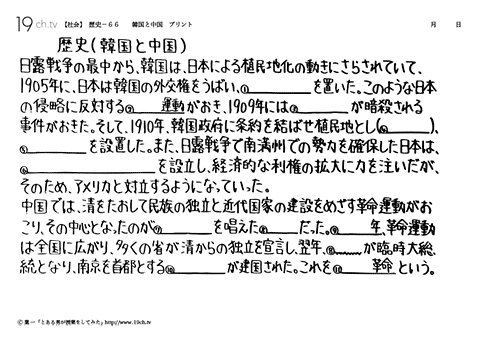 19ch.tv 【社会】 歴史－66 韓国と中国 プリント 月 日
歴史(韓国と中国)
日露戦争の最中から、韓国は、日本による植民地化の動きにさらされていて、
1905年に、日本は韓国の外交権をうばい、①________を置いた。このような日本
の侵略に反対する②____運動がおき、1909年には③________が暗殺される
事件がおきた。そして、1910年、韓国政府に条約を結ばせ植民地とし(④________)、
⑤________を設置した。また、日露戦争で南満州での勢力を確保した日本は、
⑥________________を設立し、経済的な利権の拡大に力を注いだが、
そのため、アメリカと対立するようになっていった。
中国では、清をたおして民族の独立と近代国家の建設をめざす革命運動がお
こり、その中心となったのが⑦________を唱えた⑧____だった。⑨____年、革命運動
は全国に広がり、多くの省が清からの独立を宣言し、翌年、⑧____が臨時大総
統となり、南京を首都とする⑩________が建国された。これを⑪____革命という。
©葉一「とある男が授業をしてみた」http://www.19ch.tv